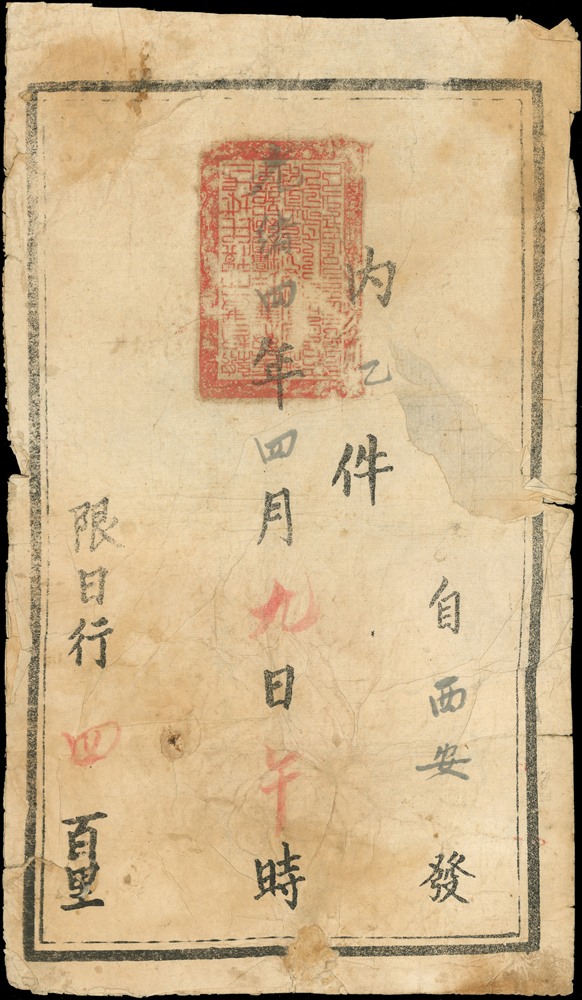 自西安發
內乙件
光緒四年四月九日午時
限日行四百里